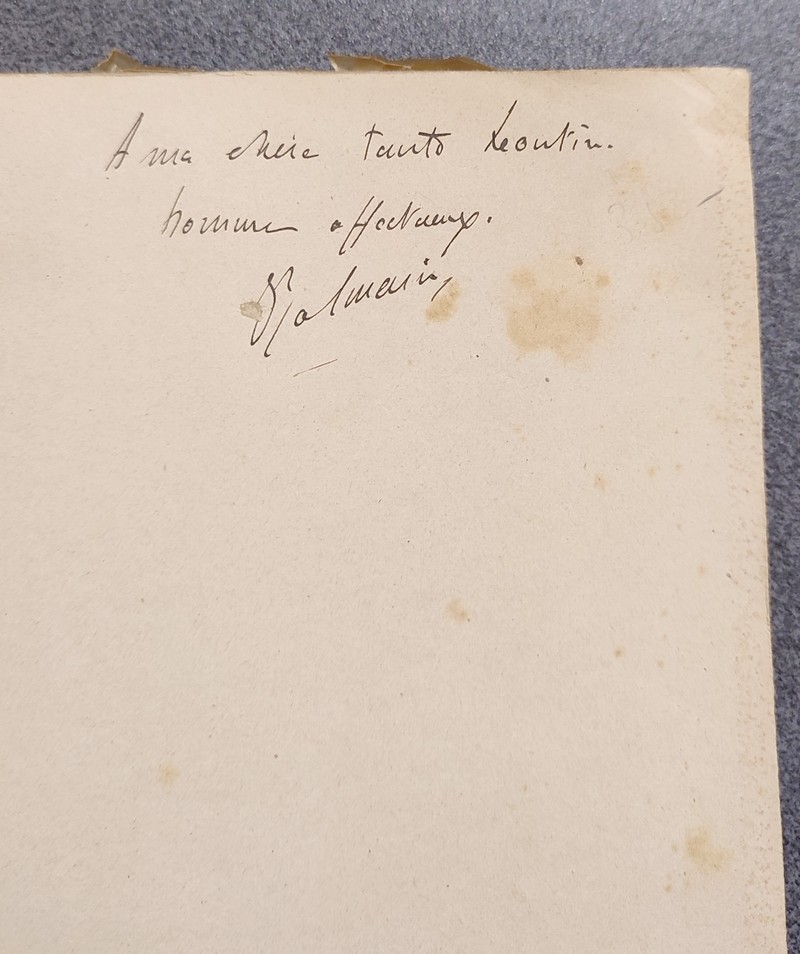 A ma chère tante Leontine.
hommage affectueux.